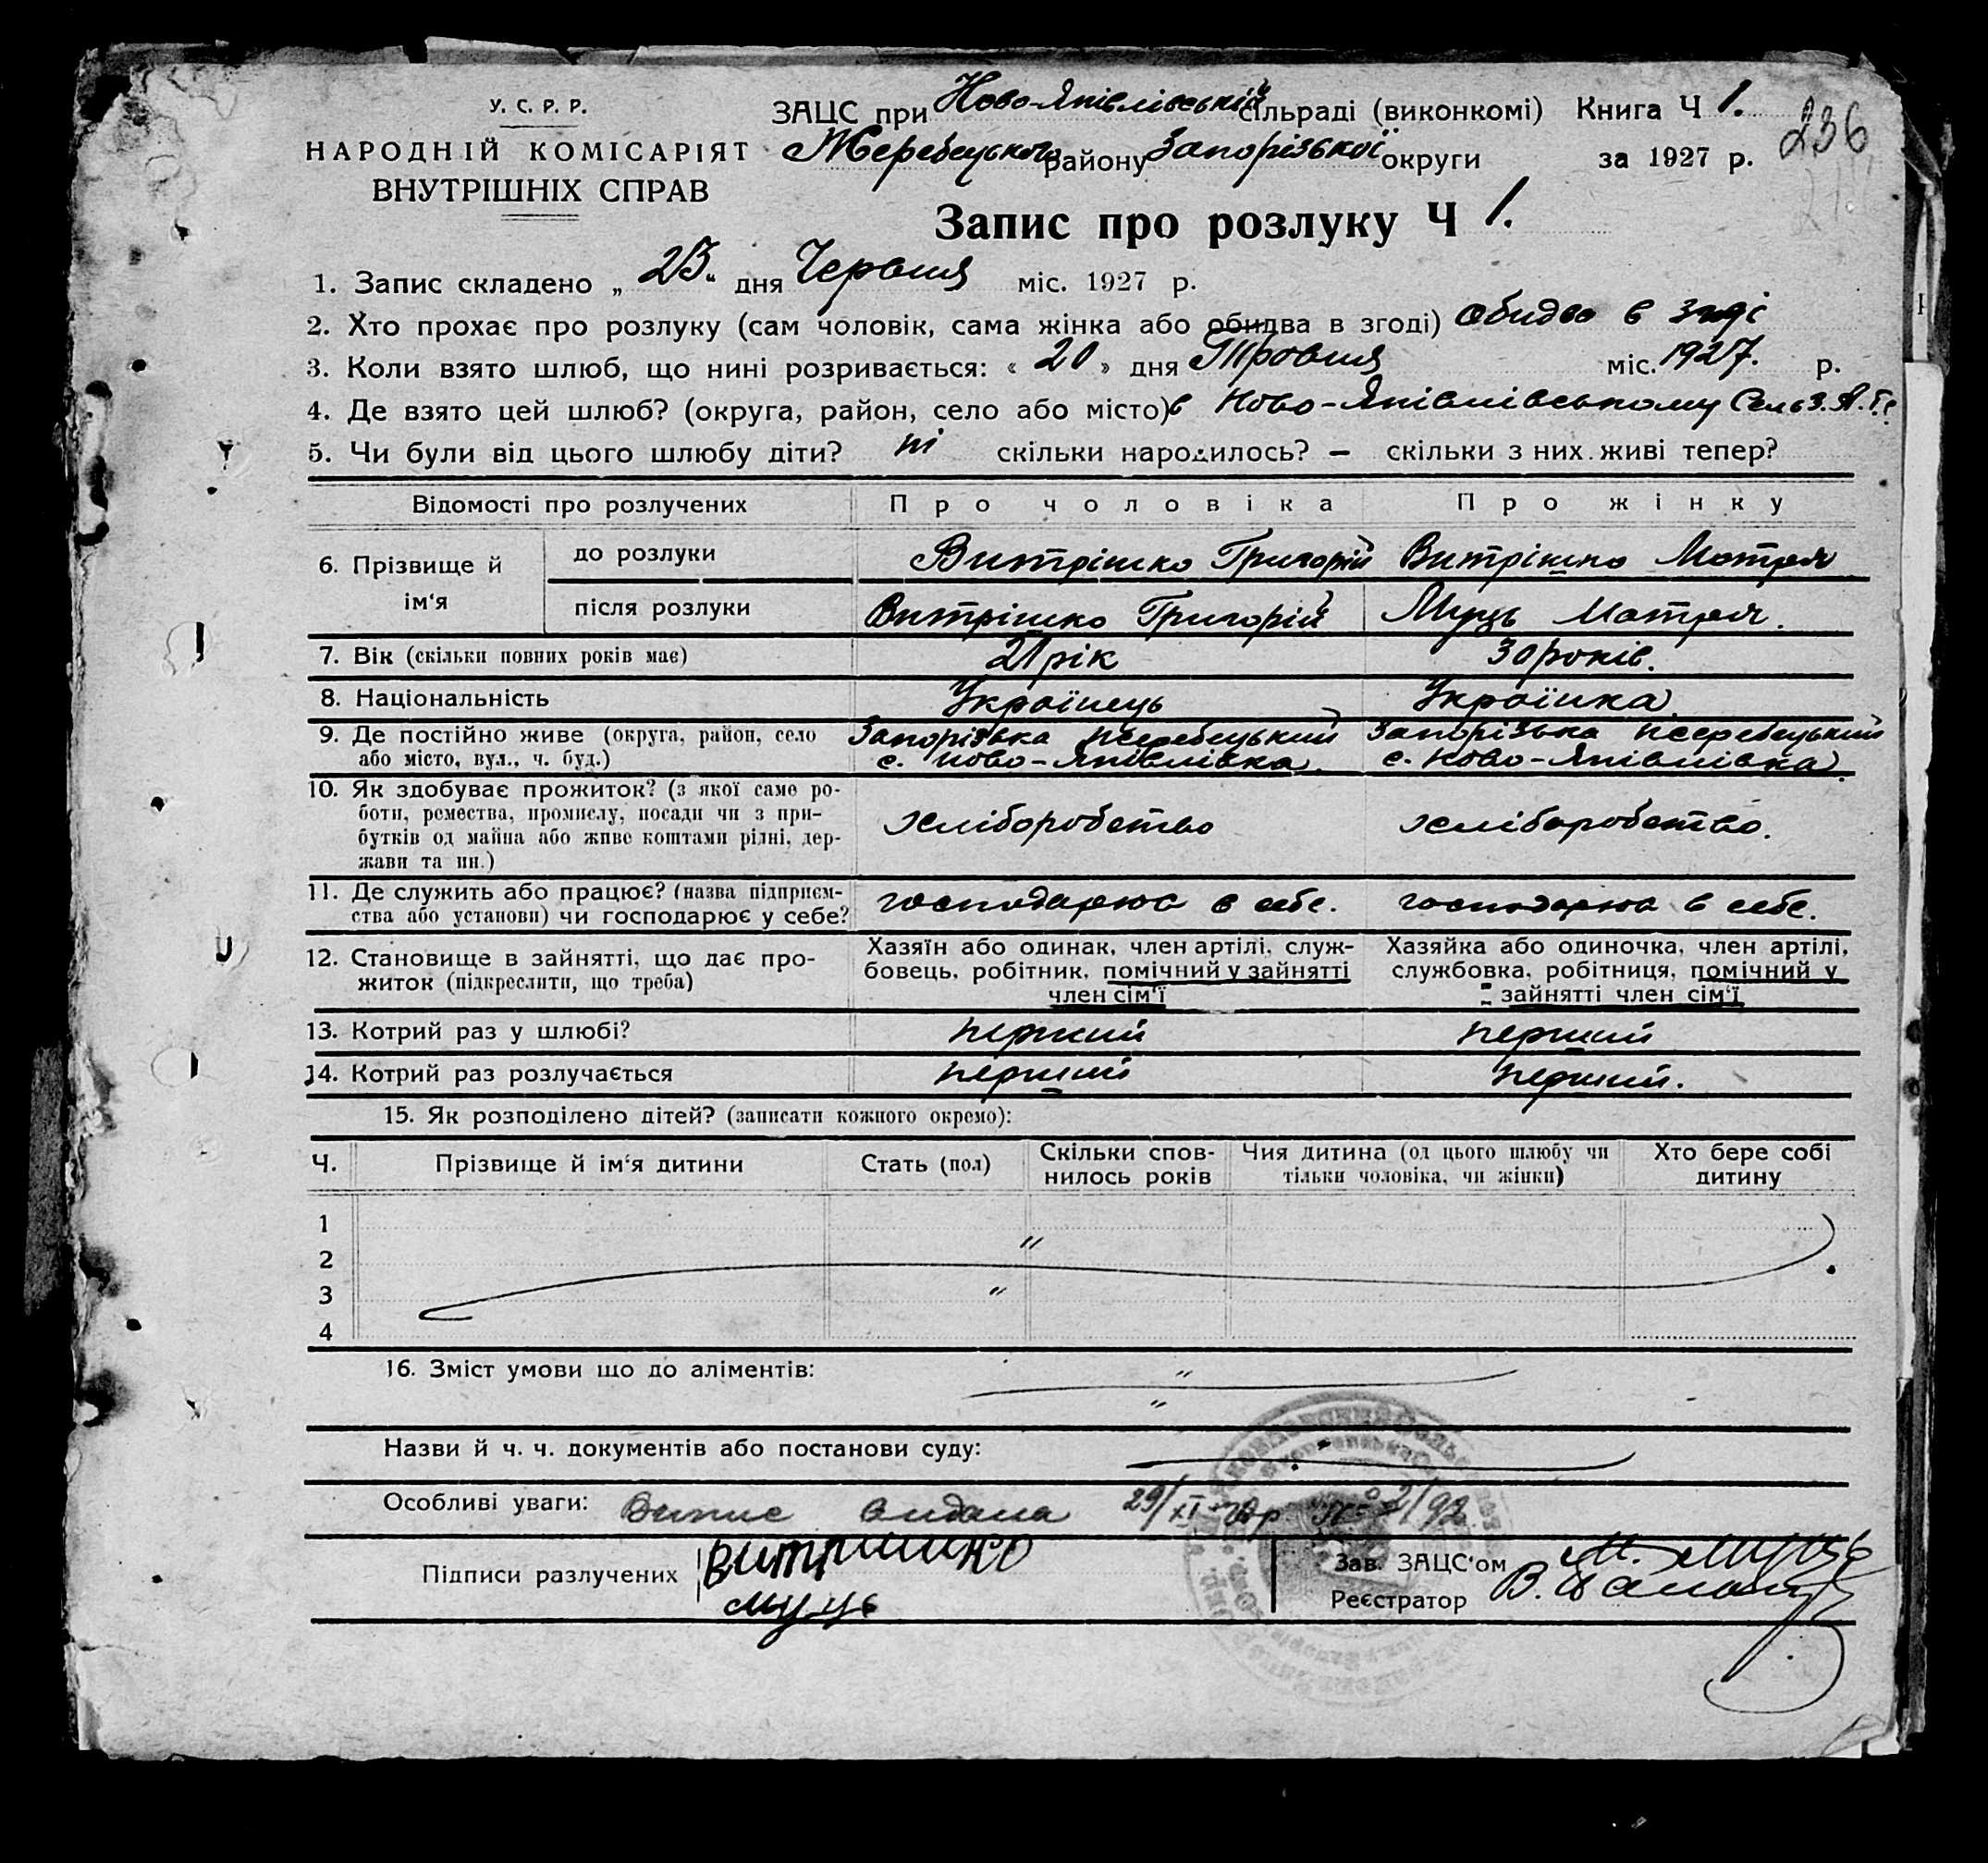 У. С. Р. Р.
НАРОДНІЙ КОМІСАРІЯТ
ВНУТРІШНІХ СПРАВ
ЗАЦС при Ново-Яківлівській сільраді (виконкомі) Книга Ч 1.
Жеребецького району Запорізької округи за 1927 р.
236
Запис про розлуку Ч 1.
1. Запис складено „ 23 “ дня Червня міс. 1927 р.
2. Хто прохає про розлуку (сам чоловік, сама жінка або обидва в згоді) Обидва в згоді
3. Коли взято шлюб, що нині розривається: « 20 » дня Травня міс. 1927. р.
4. Де взято цей шлюб? (округа, район, село або місто) в Ново-Яківлівському
5. Чи були від цього шлюбу діти? ні скільки народилось? – скільки з них живі тепер?
Відомості про розлучених Про чоловіка Про жінку
6. Прізвище й ім‘я
до розлуки Витрішко Григорій Витрішко Мотря
після розлуки Витрішко Григорій Муць Мотря.
7. Вік (скільки повних років має) 21 рік 30 років.
8. Національність Українець Українка
9. Де постійно живе (округа, район, село Запорізька Жеребецький Запорізька Жеребецький
або місто, вул., ч. буд.) с. Ново-Яківлівка. с. Ново-Яківлівка.
10. Як здобуває прожиток? (з якої саме ро-
боти, ремества, промислу, посади чи з при-
бутків од майна або живе коштами рідні, дер-
жави та ин.)
хліборобство хліборобство.
11. Де служить або працює? (назва підприєм-
ства або установи) чи господарює у себе?
господарює в себе. господарює в себе.
12. Становище в зайнятті, що дає про-
житок (підкреслити, що треба)
Хазяїн або одинак, член артілі, служ-
бовець, робітник, помічний у зайнятті
член сім‘ї
Хазяйка або одиночка, член артілі,
службовка, робітниця, помічний у
зайнятті член сім‘ї
13. Котрий раз у шлюбі? перший перший
14. Котрий раз розлучається перший перший.
15. Як розподілено дітей? (записати кожного окремо):
Ч. Прізвище й ім‘я дитини Стать (пол) Скільки спов-нилось років Чия дитина (од цього шлюбу чи тільки чоловіка, чи жінки) Хто бере собі дитину
1
2
3
4
16. Зміст умови що до аліментів:
Назви й ч. ч. документів або постанови суду:
Особливі уваги: Випис видана 29/XI
Підписи разлучених Витришко
Муць
Зав. ЗАЦС‘ом М. Муць
Реєстратор